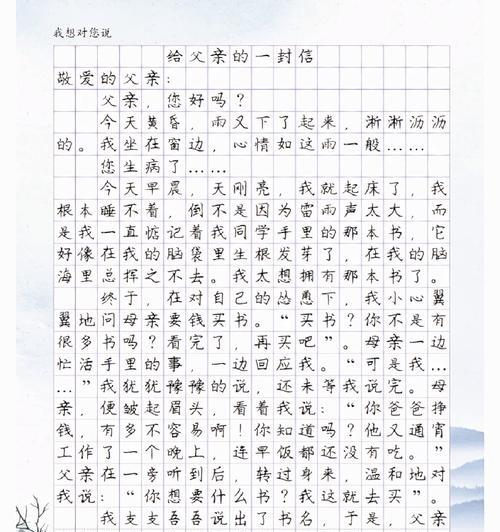 我想对您说
给父亲的一封信
敬爱的父亲：
父亲，您好吗？
今天黄昏，雨又下了起来，淅淅沥沥
的。我坐在窗边，心情如这雨一般……
您生病了……
今天早晨，天刚亮，我就起床了，我
根本睡不着，倒不是因为雷雨声太大，而
是我一直惦记着我同学手里的那本书，它
好像在我的脑袋里生根发芽了，在我的脑
海里总挥之不去。我太想拥有那本书了。
终于，在对自己的怂恿下，我小心翼
翼地问母亲要钱买书。“买书？你不是有
很多书吗？看完了，再买吧”。母亲一边
忙活手里的事，一边回应我。“可是我…
…”我犹犹豫豫的说，还未等我说完。母
亲，便皱起眉头，看着我说：“你爸爸挣
钱，有多不容易啊！你知道吗？他又通宵
工作了一个晚上，连早饭都还没有吃。”
父亲在一旁听到后，转过身来，温和地对
我说：“你想要什么书？我这就去买”。
我支支吾吾说出了书名，于是，父亲